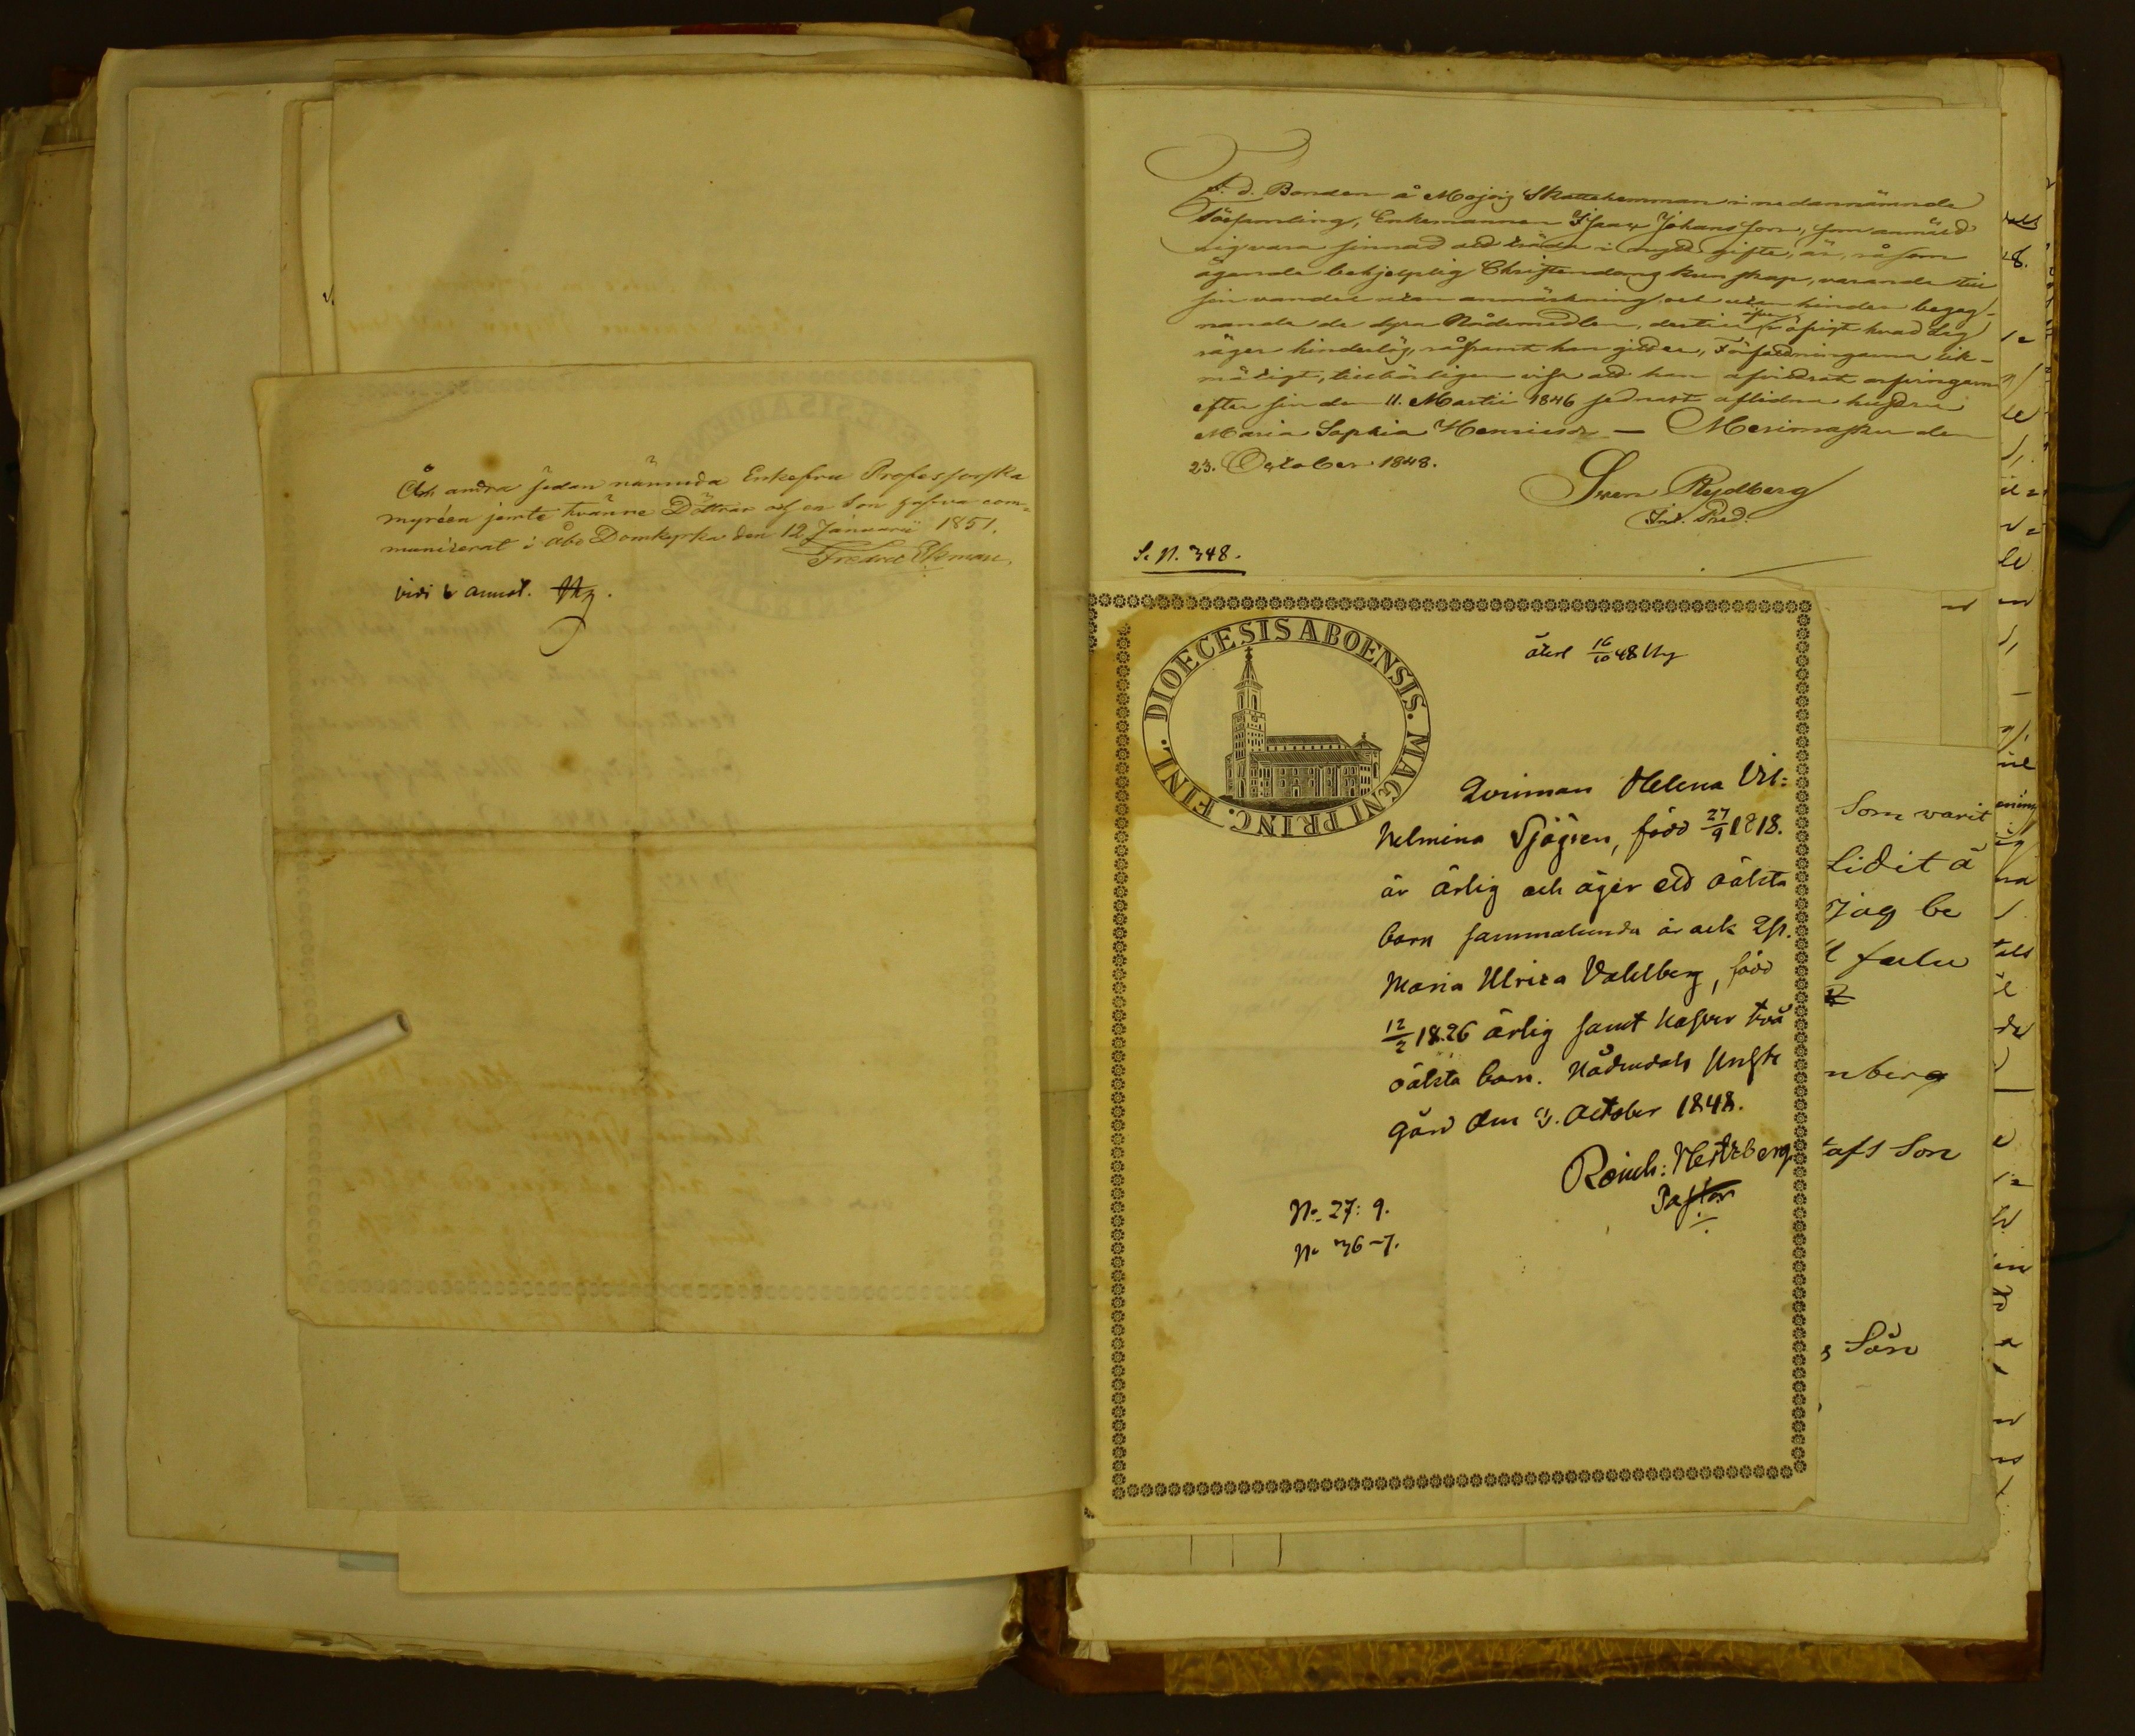 Å andra sidan nämnda Enkefru Professorska
Myréen jemte tvänne Döttrar och en Son hafva com-
municerat i Åbo Domkyrka den 12 Januarii 1851.
Fredrik Ekman.
vidi & annot.
F. d. Bonden å Mojois Skattehemman i nedannämnde
församling, Enkemannen Isaac Johansson, som anmäld
sig vara sinnad att träda i nytt gifte, är, såsom
ägande behjelplig Christendoms kunskap, varande till
sin vandel utan anmärkning och utan hinder begag-
nande de dyra Nådemedlen, dertill öfrigt hvad sig
säger hinderlös, såframt han gitter, Författningarna lik-
mätigt, tillbörligen visa att han afvittrat arfvingarna
efter sin den 11. Martii 1846 sednast aflidna hustru
Maria Sophia Henricsdr — Merimasku den
23. October 1848.
Sven Rydberg
Pred.
S. N. 348.
DIOECESIS ABOENSIS. MAGNI PRINC. FINL.
16/10 48
Qvinnan Helena Vil=
helmina Sjögren, född 27/9 1818.
är ärlig och äger ett oäkta
barn sammalunda är ock Qp.
Maria Ulrica Vahlberg, född
12/2 1826 ärlig samt hafver två
oäkta barn. Nådendals
gård den 3. October 1848.
Reinh: Hertzberg
Pastor
No 27: 9.
No 36-7.
Som varit
lidit å
jag be
nberg
afs Son
Sön